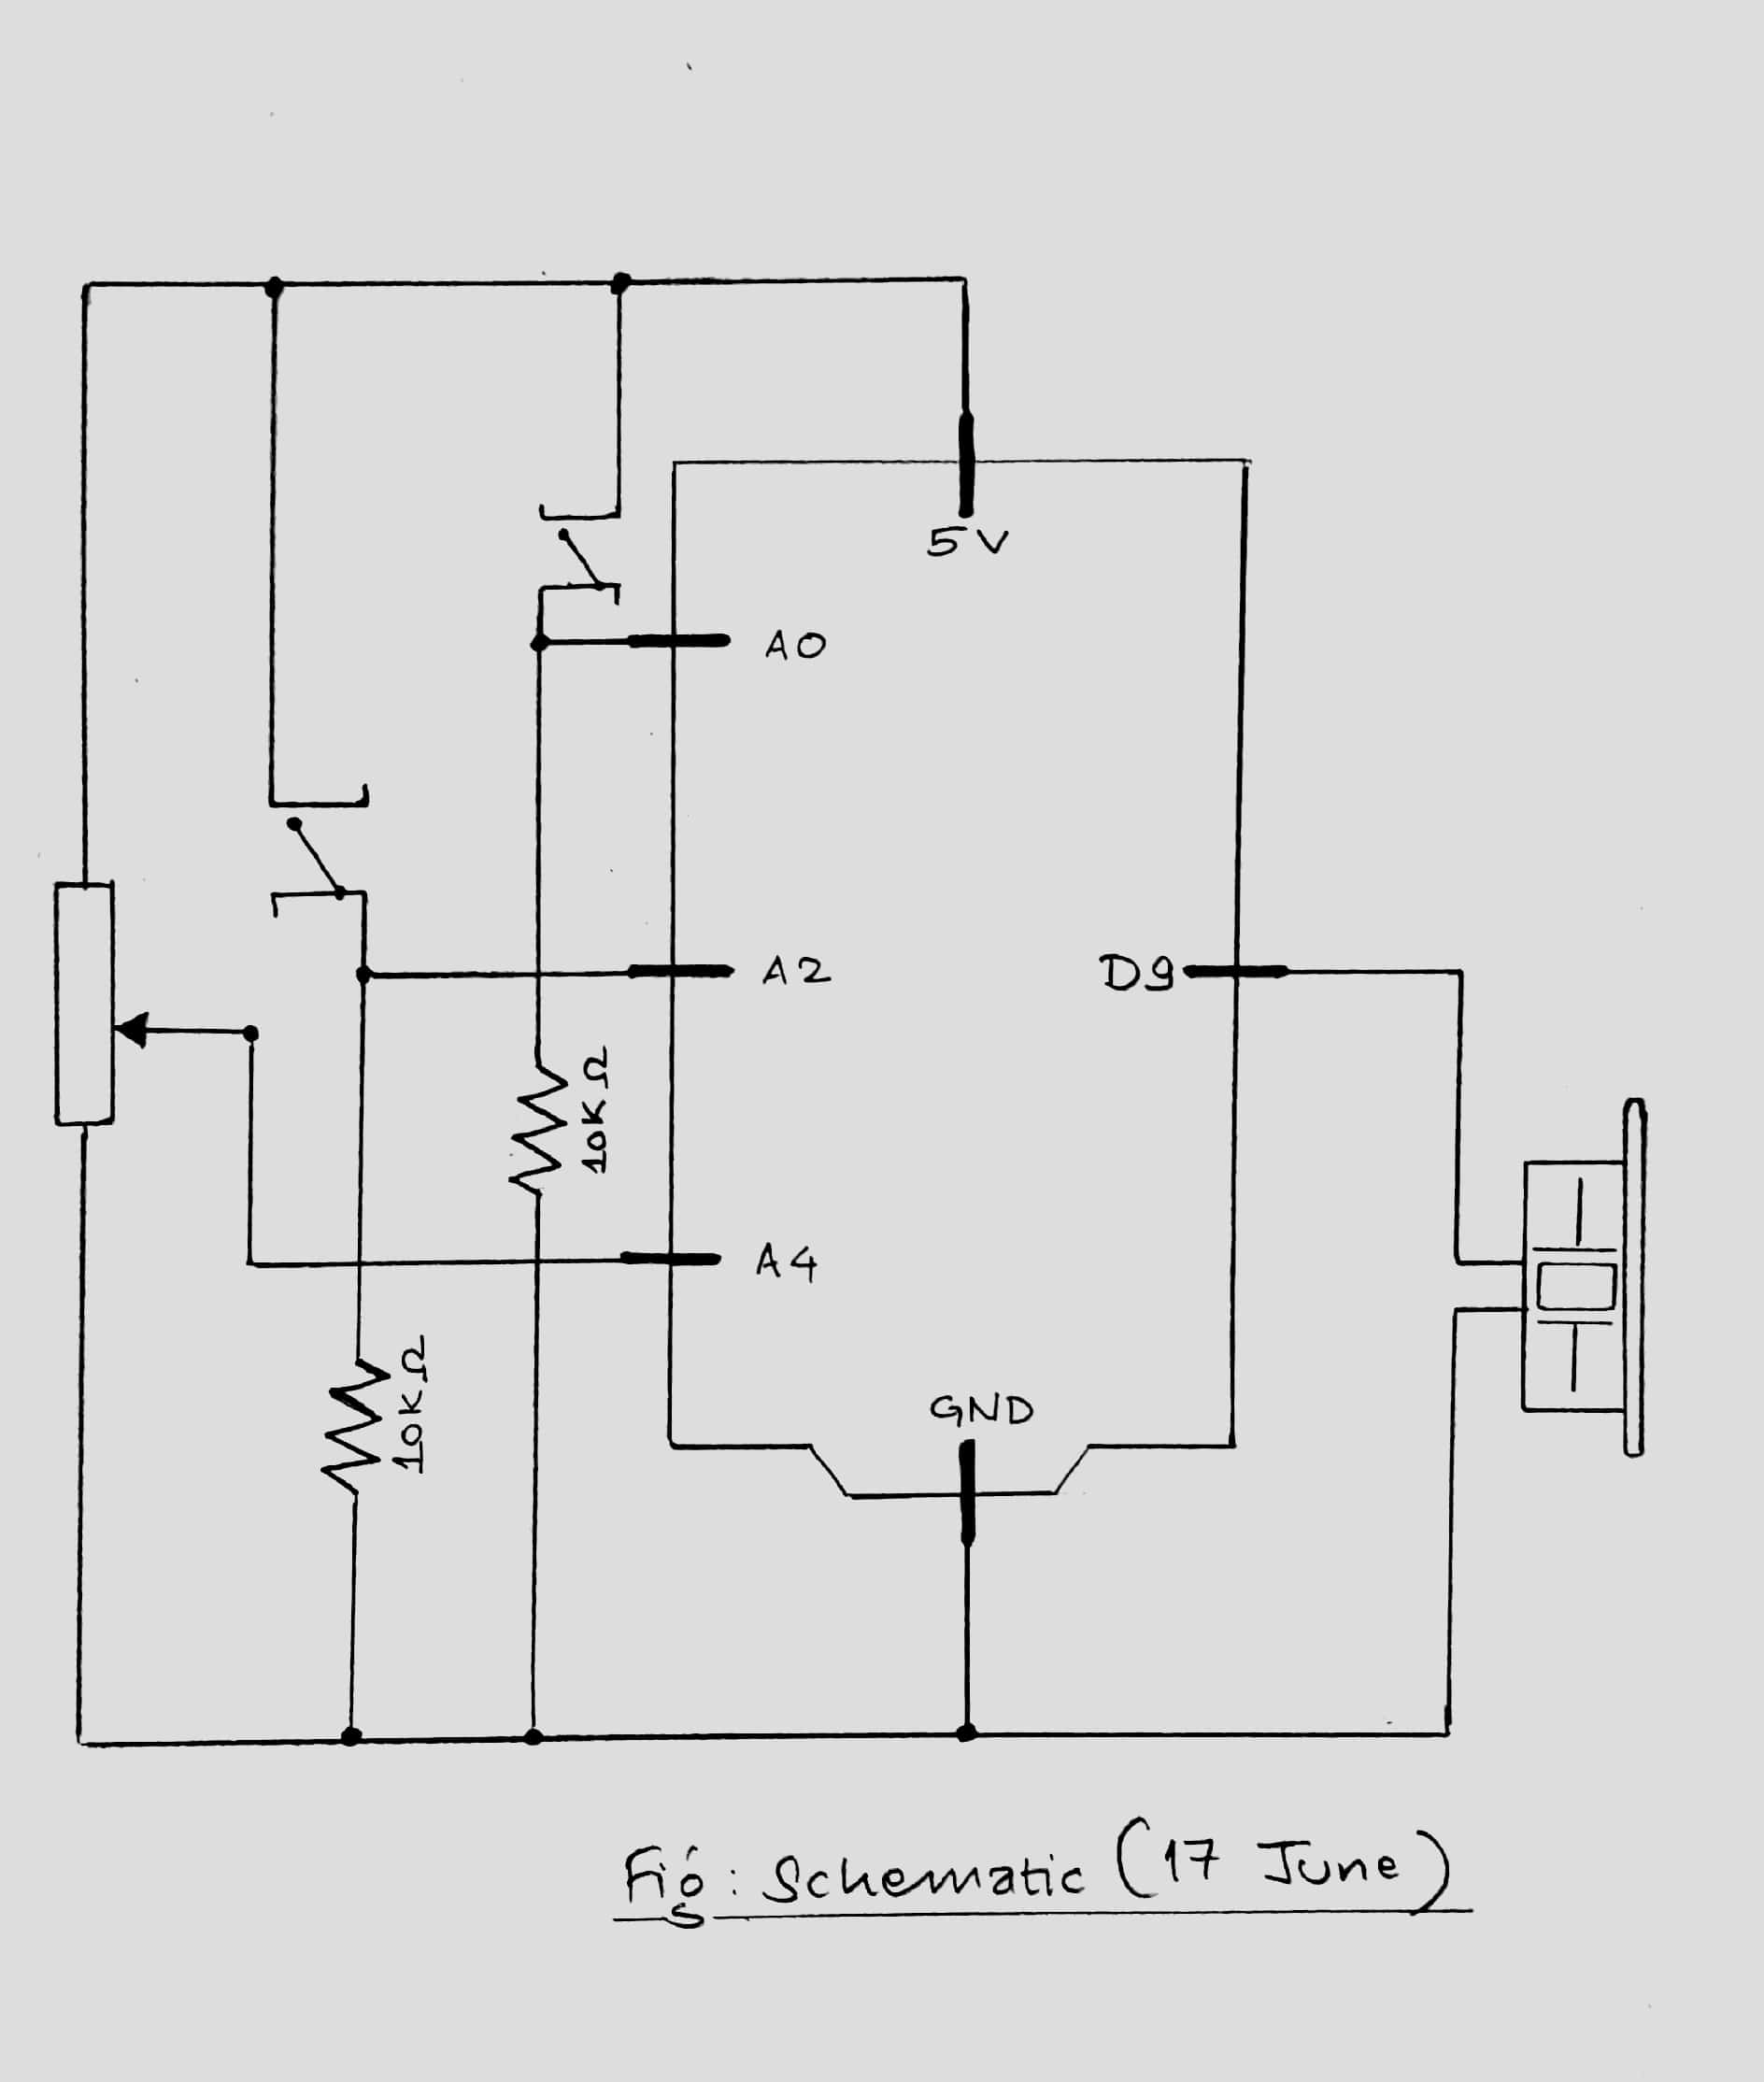 5V
A0
A2
D9
10KΩ
A4
10KΩ
GND
Fig: Schematic (17 June)